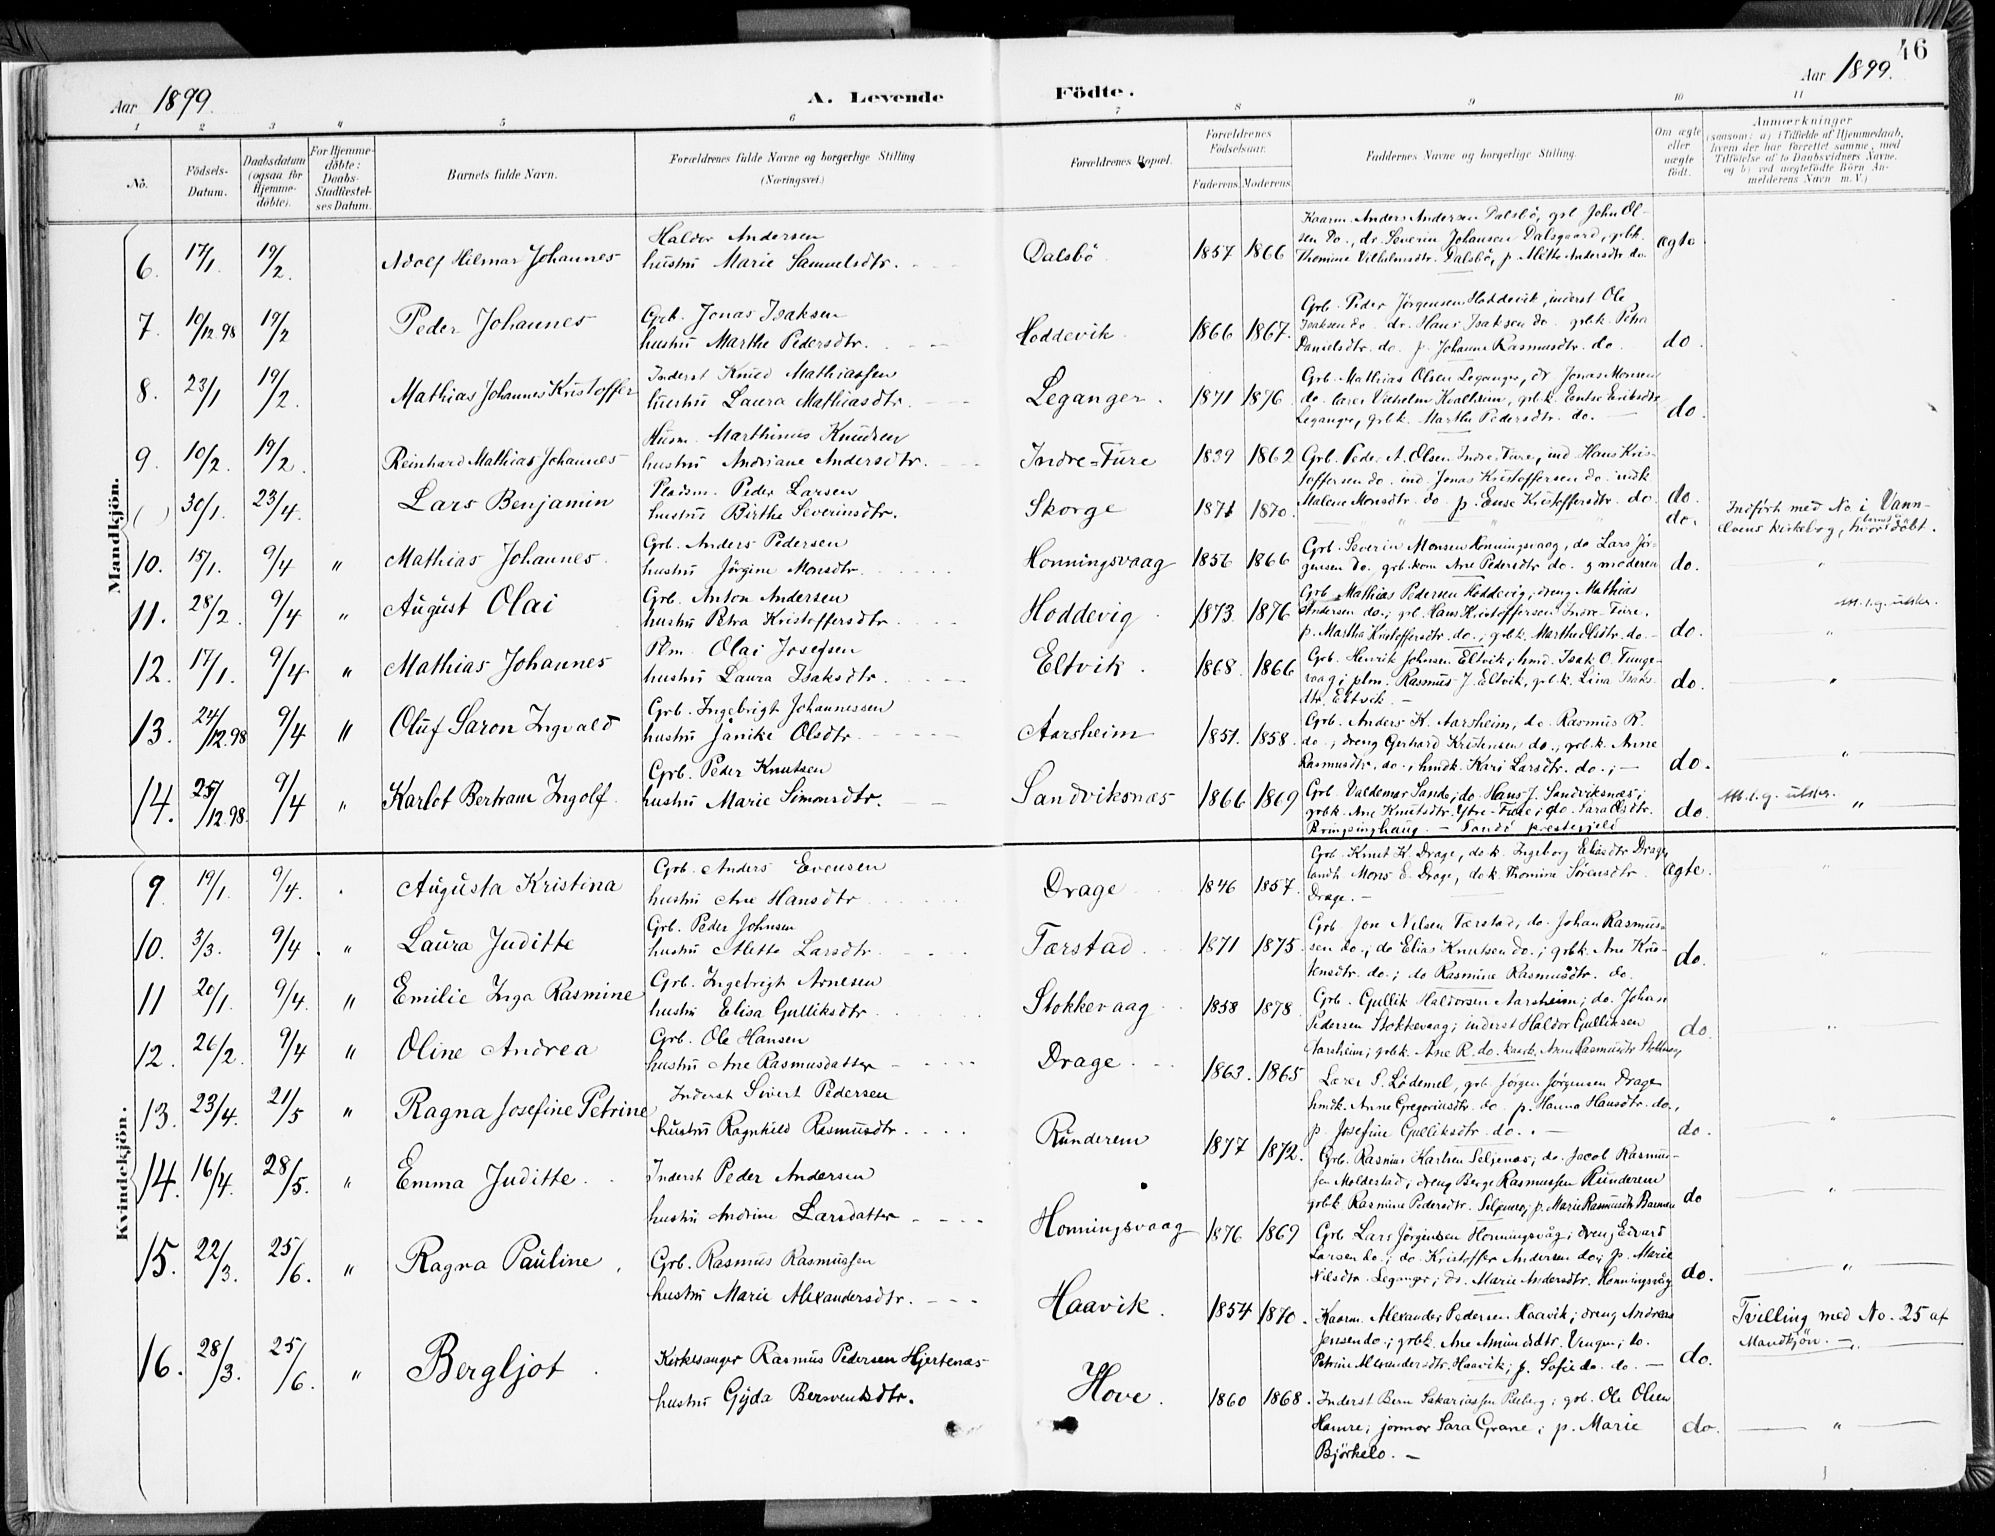 46
Aar 1899. A. Levende Fødte. Aar 1899.
1 2 3 4 5 6 7 8 9 10 11
No.
Födsels-Datum.
Daabsdatum (ogsaa for Hjemmedöbte).
For Hjemmedöbte: Daabs-Stadfæstelses Datum.
Barnets fulde Navn.
Forældrenes fulde Navne og borgerlige Stilling (Næringsvei.)
Forældrenes Bopæl.
Forældrenes Födselsaar.
Faderens Moderens
Faddernes Navne og borgerlige Stilling.
Om ægte eller uægte födt.
Anmærkninger
(saasom: a) i Tilfælde af Hjemmedaab, hvem der har forrettet samme, med Tilföielse af to Daabsvidners Navne. og b) ved uægtefödte Börn Anmelderens Navn m. V.)
Mandkjön.
6. 17/1. 19/2. Adolf Hilmar Johannes
Haldor Andersen
hustru Marie Samuelsdtr.
Dalsbö 1857 1866
Kaarm. Anders Andersen Dalsbö, grb. John Olsen do., dr. Severin Johansen Dalsgaard, grbk. Thomine Vilhelmsdtr. Dalsbö, p. Mette Andersdtr. do. ægte
7. 10/12.98 19/2 Peder Johannes
Grb. Jonas Isaksen
hustru Marthe Pedersdtr.
Hoddevik. 1866 1867.
Grb. Peder Jørgensen Hoddevik, inderst Ole Isaksen do. dr. Hans Isaksen do. grbk. Petra Danielsdtr. do. p. Johanne Rasmusdtr. do. do.
8. 23/1 19/2. Mathias Johannes Kristoffer
Inderst Knud Mathiassen
hustru Laura Mathiasdtr.
Leganger. 1871 1876
Grb. Mathias Olsen Leganger, dr. Jonas Monsen do. lærer Vilhelm Kvalheim, grbk. Eriksdtr. Leganger, grbk. Marthe Pedersdtr. do. do.
9. 10/2. 19/2. Reinhard Mathias Johannes
Husm. Marthinus Knudsen
hustru Andriane Andersdtr.
Indre-Fure 1839 1862
Grb. Peder A. Olsen Indre-Fure, ind. Hans Kristoffersen do. ind. Jonas Kristoffersen do. indk. Malene Monsdtr. do. p. Kristoffersdtr. do. do.
( ) 30/1. 23/4. Lars Benjamin
Pladsm. Peder Larsen
hustru Birthe Severinsdtr.
Skorge 1871 1870. " " " do.
Indført med No. i Vannelvens kirkebog, hvor barnet er døbt.
10. 15/1. 9/4 " Mathias Johannes.
Grb. Anders Pedersen
hustru Jörgine Monsdtr.
Honningsvaag 1856 1866
Grb. Severin Monsen Honningsvaag, do Lars Jörgensen do. grb.kone Ane Pedersdtr do. og moderen do. "
11. 28/2. 9/4 " August Olai
Grb. Anton Andersen
hustru Petra Kristoffersdtr.
Hoddevig 1873. 1876
Grb. Mathias Pedersen Hoddevig, dreng Mathias Andersen do.; grb. Hans Kristoffersen Indre-Fure. p. Martha Kristoffersdtr. do.; grbk. Marthe Olsdtr. do. - do. "
12. 17/1. 9/4 " Mathias Johannes
Plm. Olai Josefsen
hustru Laura Isaksdtr.
Eltvik. 1868. 1866
Grb. Henrik Johnsen Eltvik; hmd. Isak O. Tungevaag; plm. Rasmus J. Eltvik, grb.k. Lina Isaksdtr. Eltvik. - do. "
13. 24/12.98 9/4 " Oluf Saron Ingvald
Grb. Ingebrigt Johannessen
hustru Janike Olsdtr.
Aarsheim 1851. 1858.
Grb. Anders K. Aarsheim, do. Rasmus R. do.; dreng Gerhard Kristensen do., grb.k. Anne Rasmusdtr. do., hmdk. Kari Larsdtr. do.; - do. "
14. 25/12.98. 9/4 " Karlot Bertram Ingolf.
Grb. Peder Knutsen
hustru Marie Simonsdtr.
Sandviksnæs 1866 1869
Grb. Valdemar Sande; do. Hans J. Sandviksnæs; grbk. Ane Knutsdtr. Ytre-Fure; do. Sara Olsdtr. Bringsinghaug. - Sandö prestegjeld do. "
Kvindekjön.
9 19/1. 9/4. Augusta Kristina
Grb. Anders Evensen
hustru Ane Hansdtr
Drage 1846 1857.
Grb. Knut K. Drage, do k. Ingeborg Eliasdtr Drage, landh. Mons E. Drage, do k. Thomine Sörensdtr. Drage. - Ægte. "
10. 3/3. 9/4. " Laura Juditte
Grb. Peder Johnsen
hustru Mette Larsdtr.
Tærstad. 1871 1875.
Grb. Jon Nilsen Tærstad, do. Johan Rasmussen do., do Elias Knutsen do.; grbk. Ane Kristensdtr. do.; do Rasmine Rasmusdtr. do. do. "
11 20/1. 9/4. " Emilie Inga Rasmine
Grb. Ingebrigt Arnesen
hustru Elisa Gulliksdtr.
Stokkevaag 1858 1878
Grb. Gullik Haldorsen Aarsheim; do. Johan Pedersen Stokkevaag; inderst Haldor Gulliksen Aarsheim; grbk. Ane R. do. kaark. Anne Rasmusdtr Stokkevaag do. "
12. 26/2. 9/4 " Oline Andrea
Grb. Ole Hansen
hustru Ane Rasmusdatter
Drage. 1863. 1865
Lærer S. Lödemel, grb. Jörgen Jörgensen Drage hmdk. Anne Gregoriusdtr. do. p. Hanna Hansdtr. do., p. Josefine Gulliksdtr. do. - do. "
13. 23/4. 21/5 " Ragna Josefine Petrine
Inderst Sivert Pedersen
hustru Ragnhild Rasmusdtr.
Runderem 1877 1872.
Grb. Rasmus Karlsen Seljenæs; do. Jacob Rasmussen Moldestad; dreng Berge Rasmussen Runderem grbk Rasmine Pedersdtr. p. Marie Rasmusdtr. do "
14. 16/4. 28/5. " Emma Juditte.
Inderst Peder Andersen
hustru Andrine Larsdatter
Honningsvaag 1876 1869
Grb Lars Jörgensen Honningsvåg; dreng Edvard Larsen do.; do. Kristoffer Andersen do; p. Marie Nilsdtr. Leganger; do. Marie Andersdtr. Honningsvåg do. "
15. 22/3. 25/6. " Ragna Pauline
Grb. Rasmus Rasmussen
hustru Marie Alexandersdtr.
Haavik. 1854 1870.
Kaarm. Alexander Pedersen Haavik; dreng Andreas Jensen do.; grbk. Ane Amundsdtr. do. Petrine Alexandersdtr. Haavik; p. Sofie do. do. - do.
Tvilling med No. 25 af Mandkjön. -
16. 28/3. 25/6. " Bergljot
Kirkesanger Rasmus Pedersen Hjertenæs
hustru Gyda Bersventsdtr.
Hove. 1860 1868.
Inderst Bern Sakariassen; grb. Ole Olsen Hamre; jormor Sara Grane; p. Marie Björkelo. - do. "